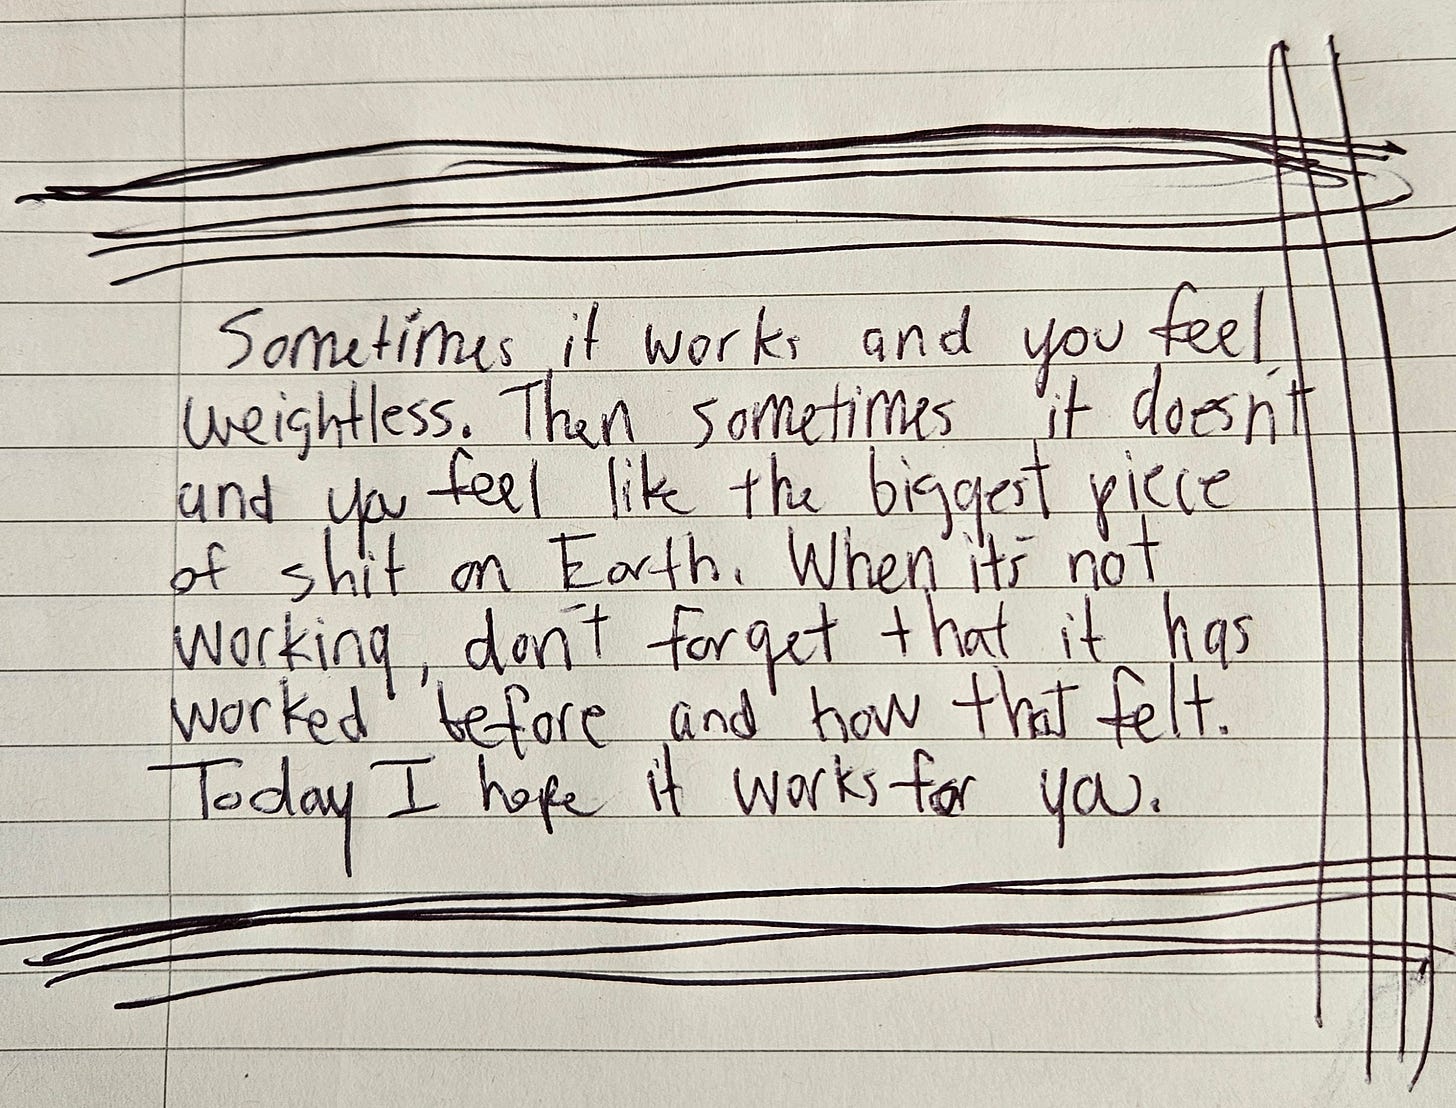 Sometimes it works and you feel
weightless. Then sometimes it doesn't
and you feel like the biggest piece
of shit on Earth. When it's not
working, don't forget that it has
worked before and how that felt.
Today I hope it works for you.